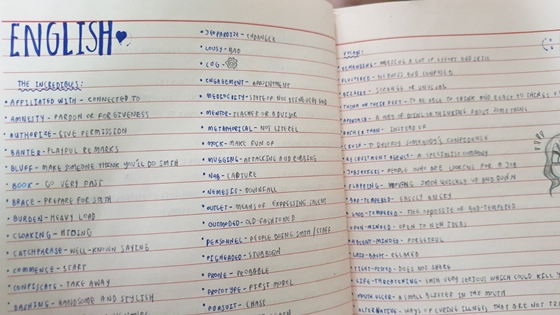 ENGLISH
THE INCREDIBLES:
• AFFILIATED WITH - CONNECTED TO
• AMNESTY - PARDON OR FORGIVENESS
• AUTHORIZE - GIVE PERMISSION
• BANTER - PLAYFUL REMARKS
• BLUFF - MAKE SOMEONE THINK YOU'LL DO SMTH
• BOOK - GO VERY FAST
• BRACE - PREPARE FOR SMTH
• BURDEN - HEAVY LOAD
• CLOAKING - HIDING
• CATCHPHRASE - WELL-KNOWN SAYING
• COMMENCE - START
• CONFISCATE - TAKE AWAY
• DASHING - HANDSOME AND STYLISH
• JEOPARDIZE - ENDANGER
• LOUSY - BAD
• LOG -
• ENGAGEMENT - APPOINTMENT
• MEDIOCRITY - STATE OF NOT BEING VERY GOOD
• MENTOR - TEACHER OR ADVISOR
• METAPHORICAL - NOT LITERAL
• MOCK - MAKE FUN OF
• MUGGING - ATTACKING AND ROBBING
• NAB - CAPTURE
• NEMESIS - DOWNFALL
• OUTLET - MEANS OF EXPRESSING
• OUTMODED - OLD-FASHIONED
• PERSONNEL - PEOPLE DOING SMTH / STAFF
• PIGHEADED - STUBBORN
• PRONE - PROBABLE
• PROTOTYPE - FIRST MODEL
• PURSUIT - CHASE
DEMANDING - NEEDING A LOT OF EFFORT AND SKILL
FLUSTERED - NERVOUS AND CONFUSED
BIZARRE - STRANGE OR UNUSUAL
THINK ON THEIR FEET - TO BE ABLE TO THINK AND REACT TO
- A WAY OF DEALING THINKING ABOUT SOMETHING
RATHER THAN - INSTEAD OF
CRUSH - TO DESTROY SOMEONE'S CONFIDENCE
RECRUITMENT AGENCY - A SPECIALIST COMPANY
JOBSEEKERS - PEOPLE WHO ARE LOOKING FOR A JOB
FLAPPING - MOVING SMTH QUICKLY UP AND DOWN
BAD-TEMPERED - EASILY ANGRY
GOOD-TEMPERED - THE OPPOSITE OF BAD-TEMPERED
OPEN-MINDED - OPEN TO NEW IDEAS
ABSENT-MINDED - FORGETFUL
LAID-BACK - RELAXED
TIGHT-FISTED - DOES NOT SHARE
LIFE-THREATENING - SMTH VERY SERIOUS WHICH COULD KILL
MOUTH ULCER - A SMALL BLISTER IN THE MOUTH
ALTERNATIVE - WAYS OF CURING ILLNESS THAT ARE NOT